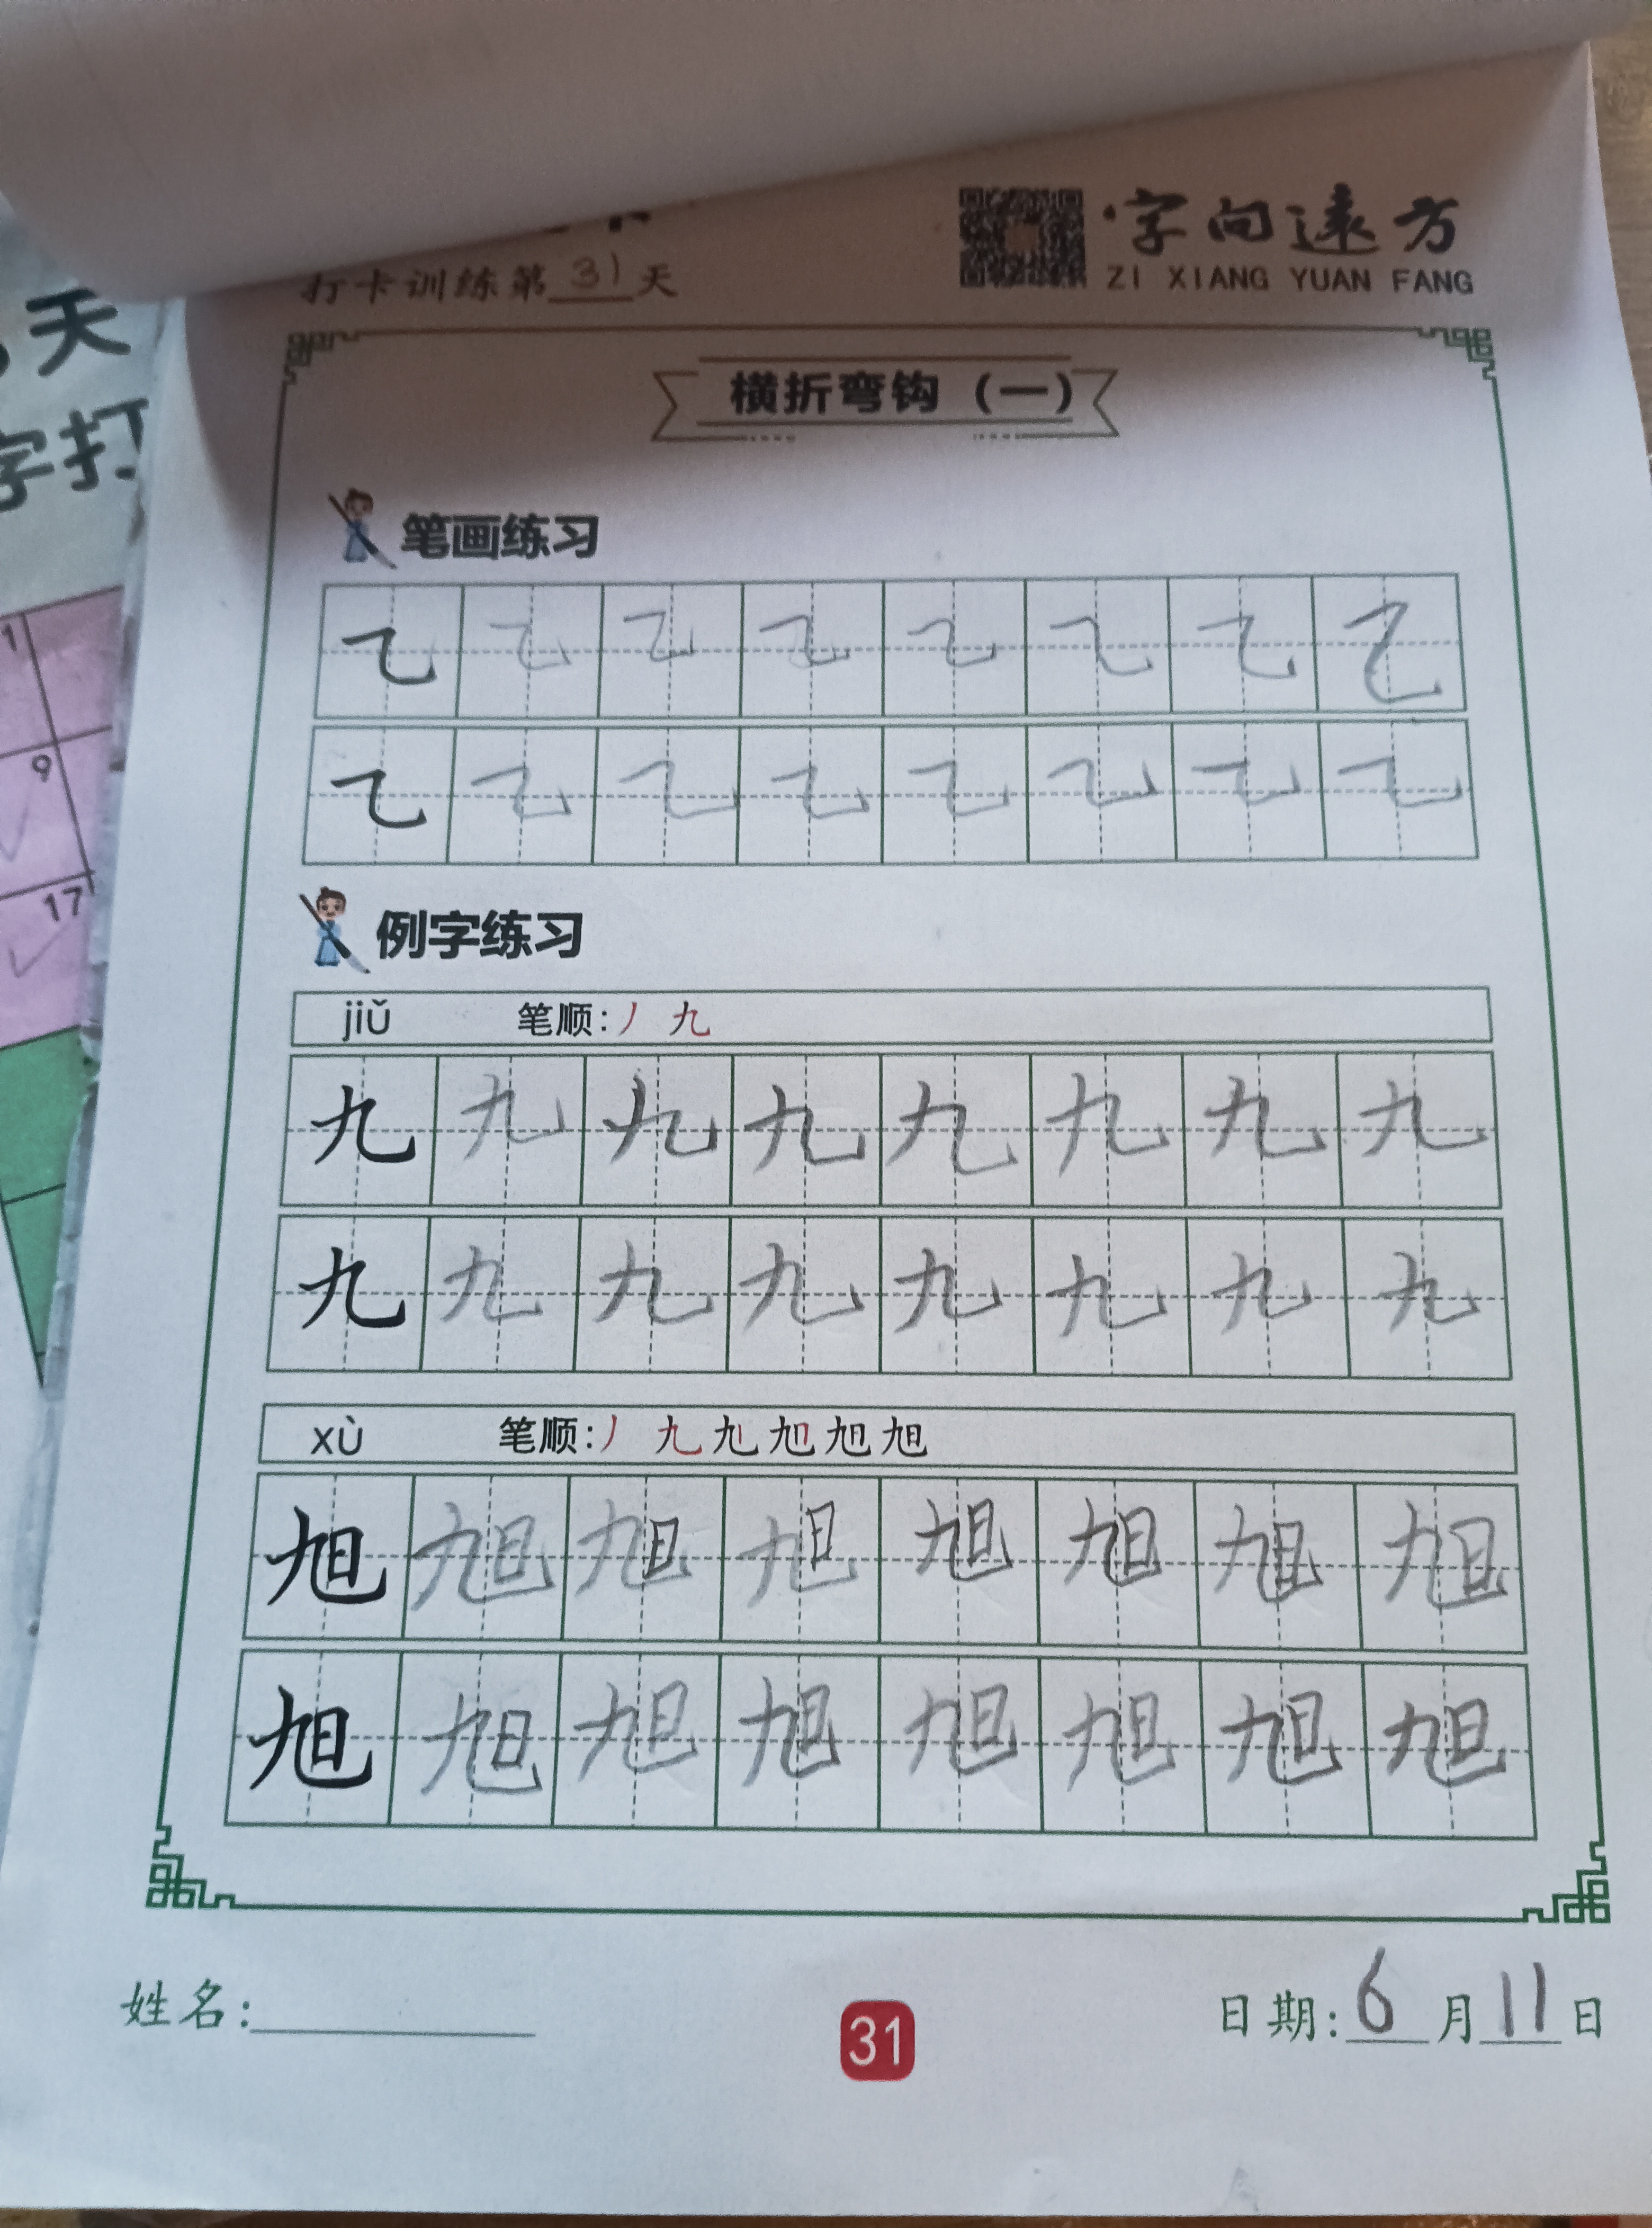 字向远方
ZI XIANG YUAN FANG
打卡训练第31天
天
字打
1
9
17
横折弯钩（一）
笔画练习
㇈ ㇈ ㇈ ㇈ ㇈ ㇈ ㇈ ㇈
㇈ ㇈ ㇈ ㇈ ㇈ ㇈ ㇈ ㇈
例字练习
jiǔ 笔顺：丿 九
九 九 九 九 九 九 九 九
九 九 九 九 九 九 九 九
xù 笔顺：丿 九 旭 旭 旭
旭 旭 旭 旭 旭 旭 旭 旭
旭 旭 旭 旭 旭 旭 旭 旭
姓名：
31
日期：6月11日